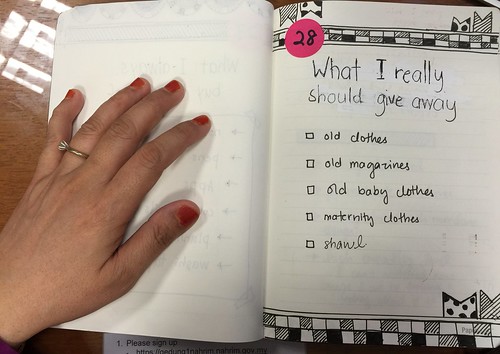 28
What I really
should give away
old clothes
old magazines
old baby clothes
maternity clothes
shawl
1. Please sign up